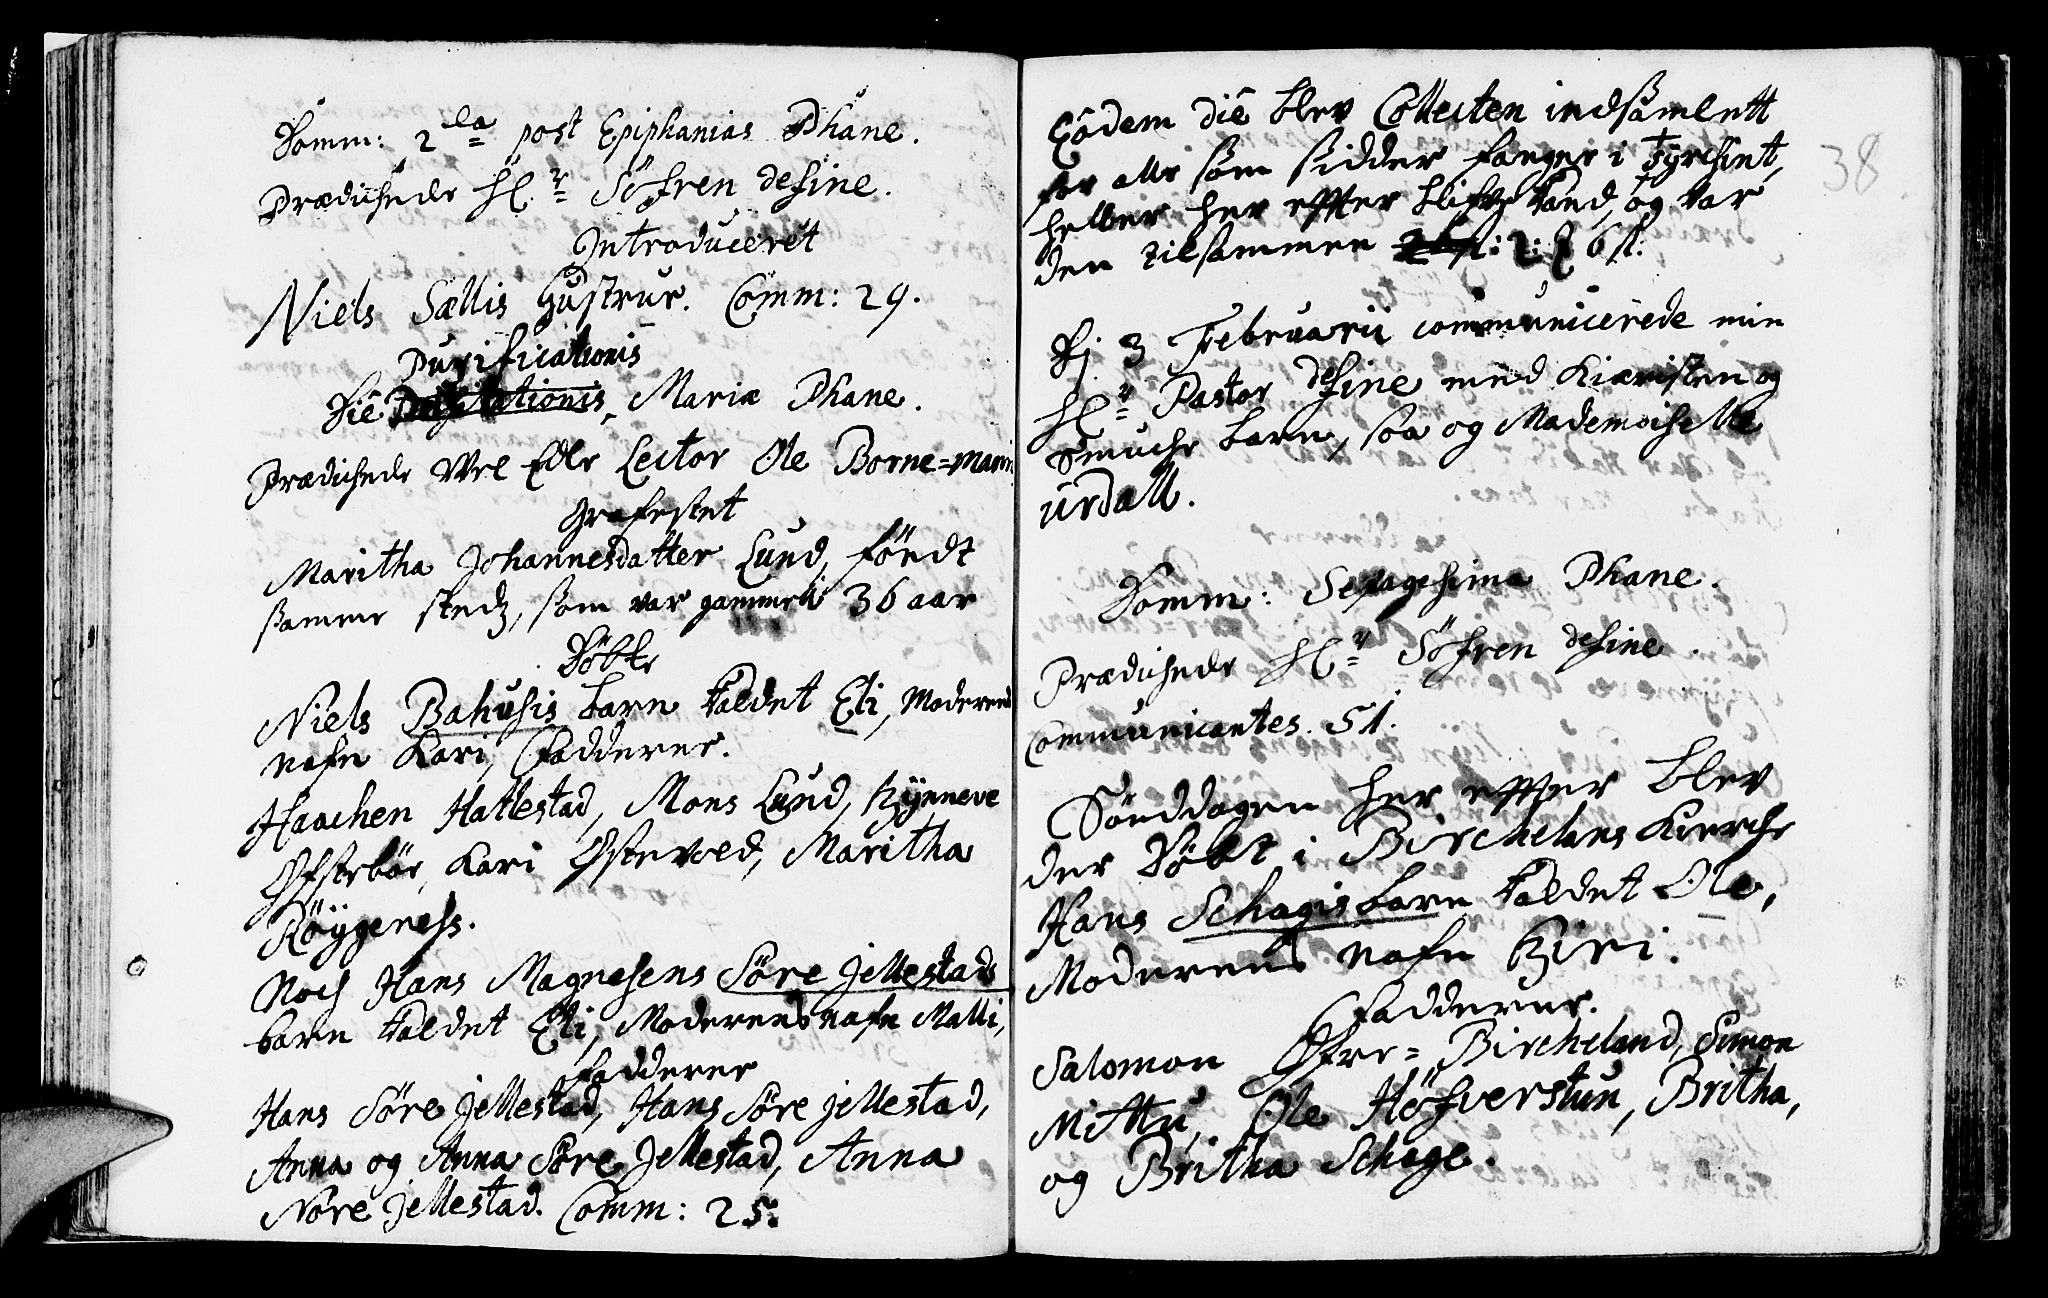 Domm: 2da post Epiphanias Phane.
Prædichede Hr Söfren de fine.
Introduceret
Niels Sællis Hustrue. Comm: 29.
Purificationis
Die Mariæ Phane.
Prædichede Wel Edle Lector Ole Borne=man
Grafestet
Maritha Johannesdatter Lund, föedt
samme stedz, som var gammell 36 aar
Döbte
Niels Bahusis barn kaldet Eli, Moderens
nafn Kari, Fadderer.
Haachen Hattestad, Mons Lund, Synneve
Øfsteböe, Kari Østevold, Maritha
Röygeness.
Noch Hans Magnesens Söre Jellestads
barn kaldet Eli, Moderens nafn Malli,
Fadderer
Hans Söre Jellestad, Hans Söre Jellestad,
Anna og Anna Söre Jellestad, Anna
Nore Jellestad. Comm: 25.
38
Eodem die blev Collecten indsamlett
for alle som sidder fanger i Tyrchiet,
heller her effter blifve kand, og var
den tilsammen 6 st:
Dj 3 Februarii communicerede min
Hr Pastor de fine med Kiæristen og
Smuche barn, saa og Mademoiselle
Urdall.
Domm: Sexagesima Phane.
Prædichede Hr Söfren de fine.
Communicantes. 51.
Sönddagen her effter blev
der Döbt i Birchelans Kierche
Hans Schagis barn kaldet Ole,
Moderens nafn Siri.
Fadderer.
Salomon Øfre=Bircheland, Simon
Mittu, Ole Höfverstun, Britha,
og Britha Schage.